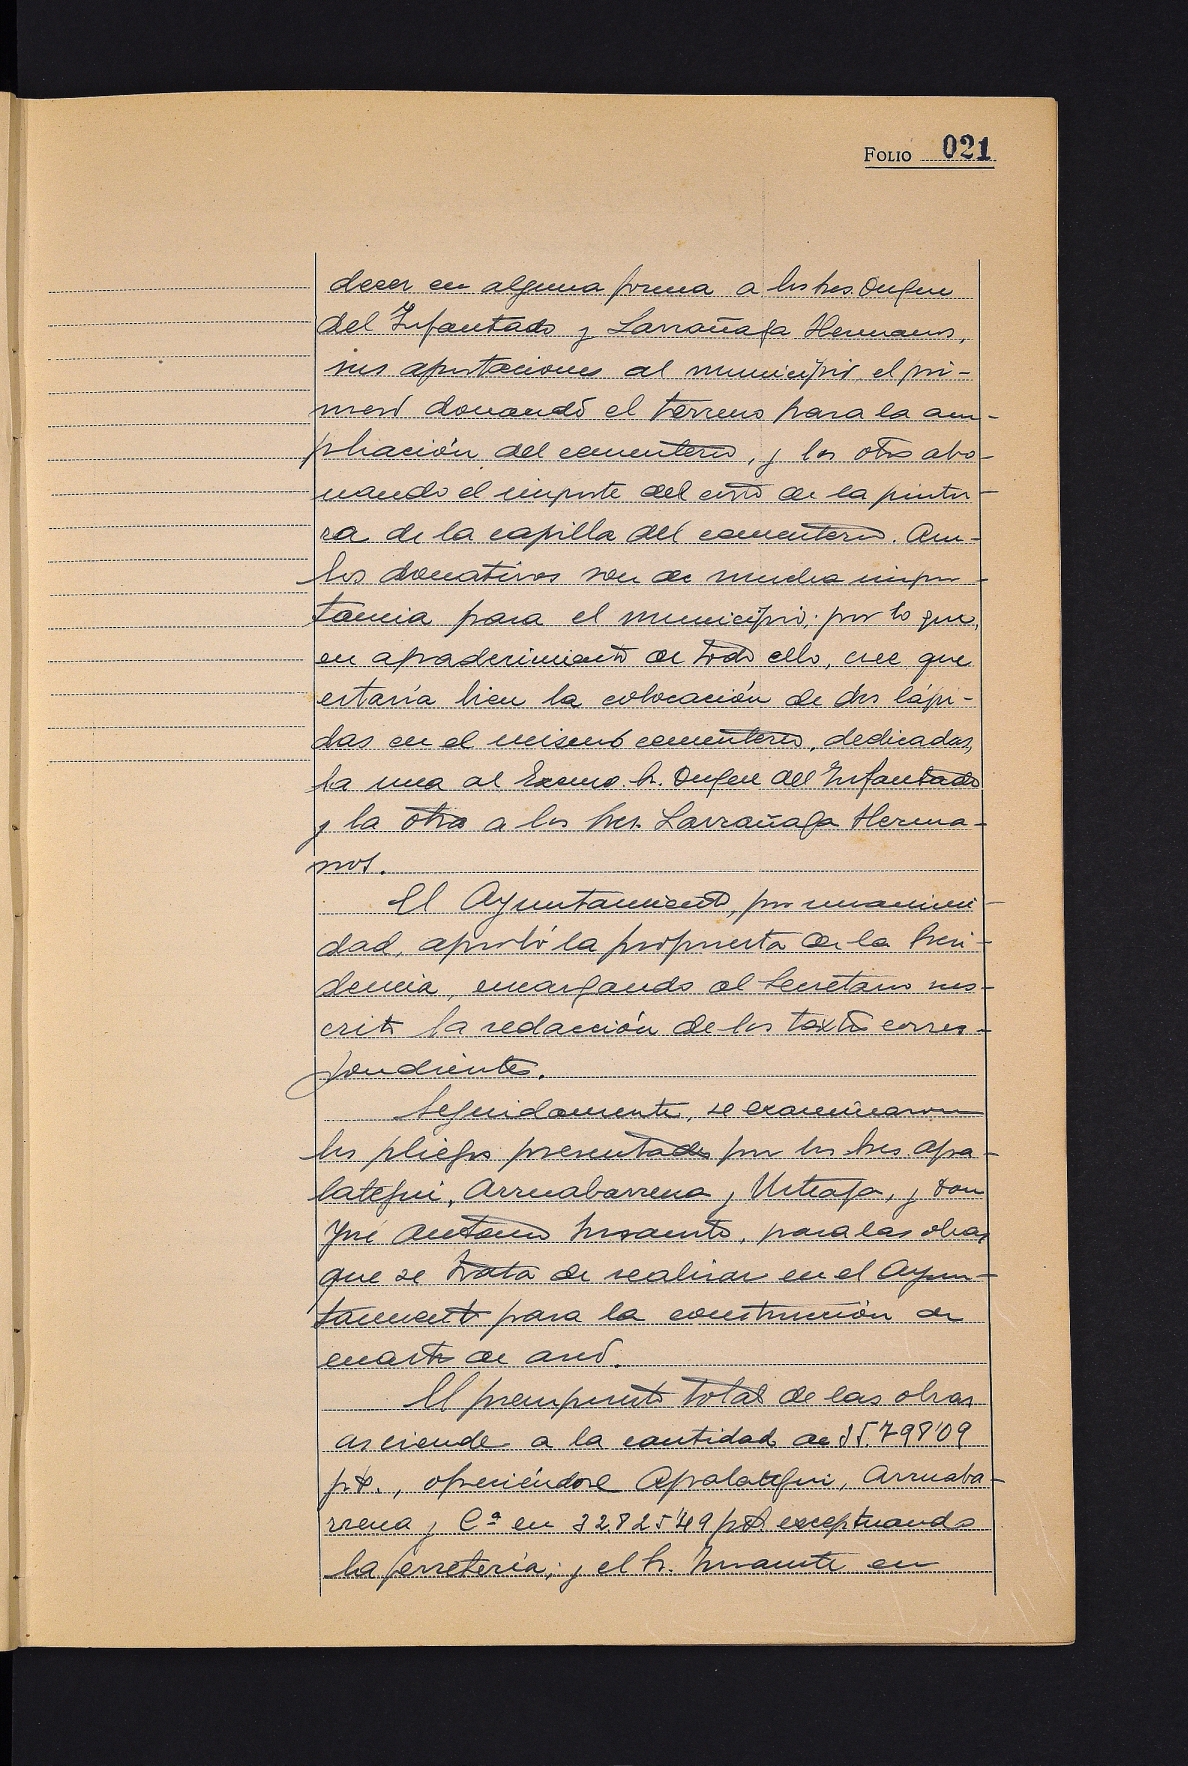 FOLIO 021
decer en alguna forma a los Sres. Duque
del Infantado y Larrañaga Hermanos,
sus aportaciones al municipio, el pri-
mero donando el terreno para la am-
pliación del cementerio, y los otros abo-
nando el importe del costo de la pintu-
ra de la capilla del cementerio. Am-
bos donativos son de mucha impor-
tancia para el municipio; por lo que,
en agradecimiento de todo ello, cree que
estaría bien la colocación de dos lápi-
das en el mismo cementerio, dedicadas,
la una al Excmo. Sr. Duque del Infantado
y la otra a los Sres. Larrañaga Herma-
nos.
El Ayuntamiento, por unanimi-
dad, aprobó la propuesta de la Presi-
dencia, encargando al Secretario sus-
crito la redacción de los textos corres-
pondientes.
Seguidamente, se examinaron
los pliegos presentados por los Sres. Apa-
lategui, Arruabarrena y Urteaga, y Don
José Antonio, para las obras
que se trata de realizar en el Ayun-
tamiento para la construcción de
cuarto de aseo.
El presupuesto total de las obras
asciende a la cantidad de 35.798'09
pts., ofreciéndose Apalategui, Arruaba-
rrena y Cª en 32.825'49 pts. exceptuando
la ferretería; y el Sr. en